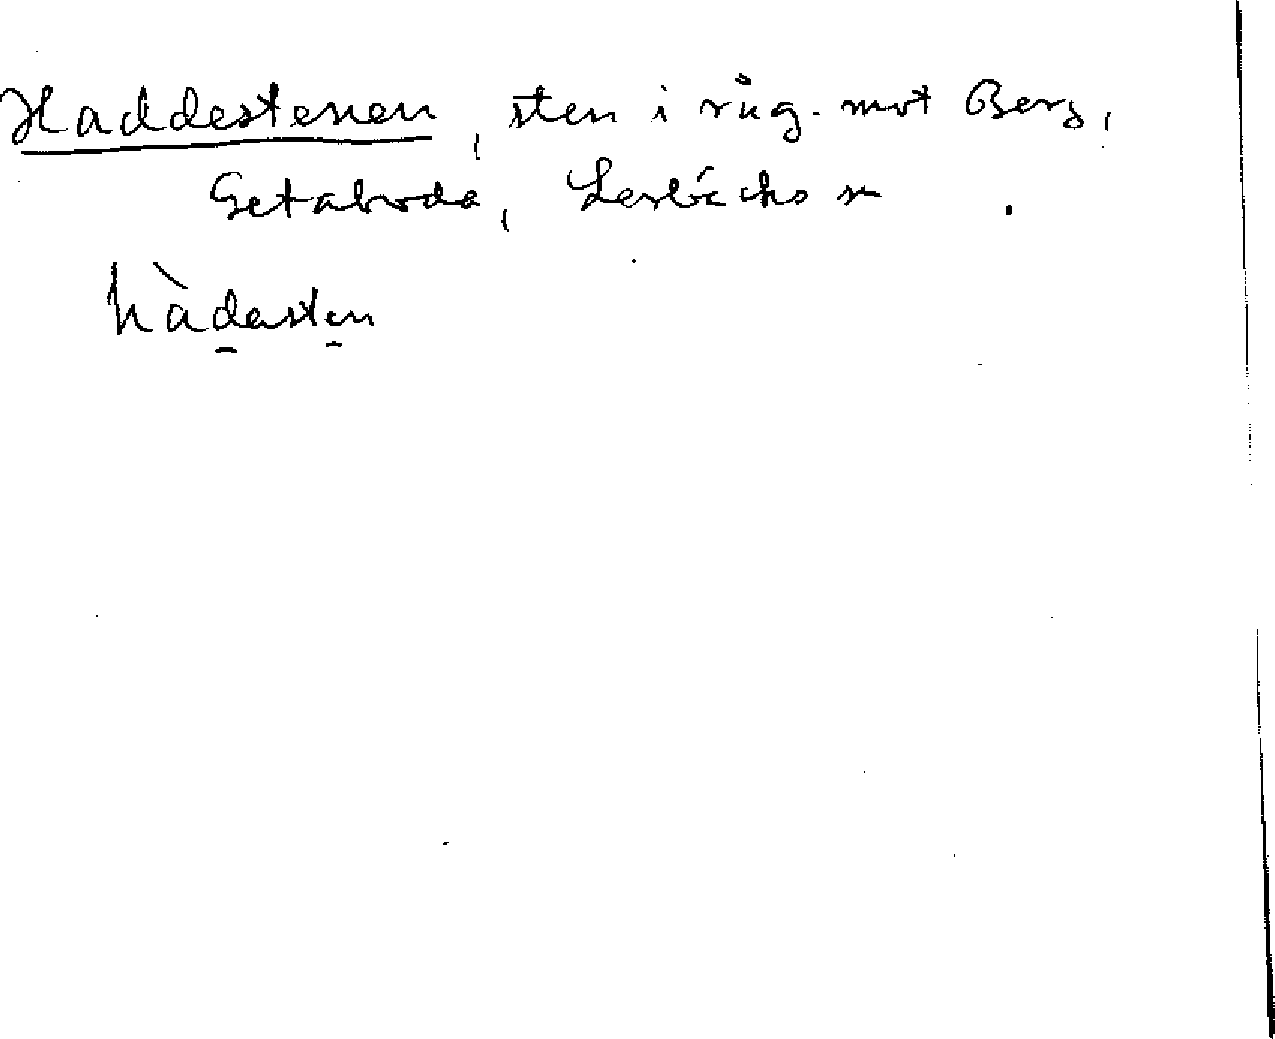 Haddestenen, sten i råg. mot Berg,
Getabroda, Lerbäcks sn
hàdasten